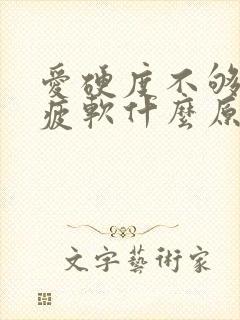 愛硬度不够
疲軟什麼原
文字藝術家